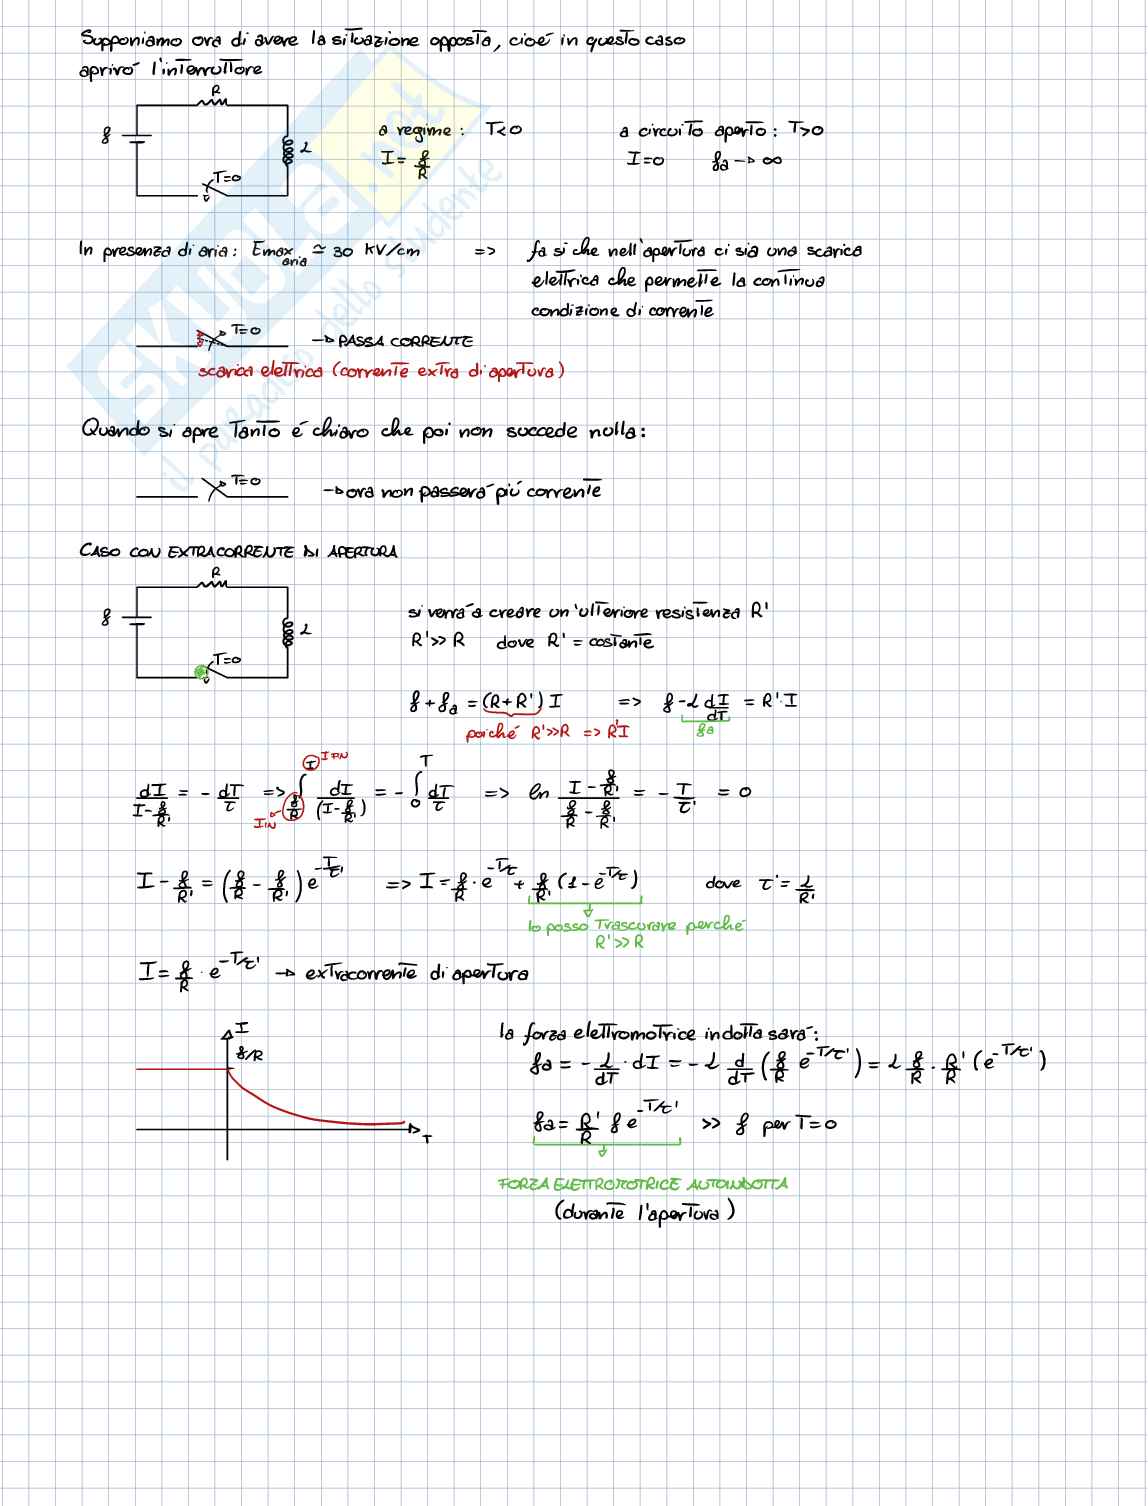 Supponiamo ora di avere la situazione opposta, cioé in questo caso
apriró l'interruttore
R
f
L
T=0
a regime: T<0
I= f/R
a circuito aperto: T>0
I=0 fa → ∞
In presenza di aria: Emax aria ≃ 30 KV/cm => fa si che nell'apertura ci sia una scarica
elettrica che permette la continua
condizione di corrente
T=0 → PASSA CORRENTE
scarica elettrica (corrente extra di apertura)
Quando si apre tanto é chiaro che poi non succede nulla:
T=0 → ora non passerá piú corrente
CASO CON EXTRACORRENTE DI APERTURA
R
f
L
T=0
si verrá a creare un'ulteriore resistenza R'
R'>>R dove R' = costante
f + fa = (R+R') I => f - L dI/dT = R'·I
poiché R'>>R => R'I
fa
dI/(I - f/R') = - dT/τ' => ∫ dI/(I - f/R') = - ∫ dT/τ => ln (I - f/R')/(f/R - f/R') = - T/τ' = 0
I FIN
I
f/R
I IN
T
0
I - f/R' = (f/R - f/R') e^-T/τ' => I = f/R · e^-T/τ + f/R' (1 - e^-T/τ) dove τ' = L/R'
lo posso trascurare perché
R'>>R
I = f/R · e^-T/τ' → extracorrente di apertura
I
f/R
T
la forza elettromotrice indotta sará:
fa = - L/dT · dI = - L d/dT (f/R e^-T/τ') = L f/R · R'/R (e^-T/τ')
fa = R'/R f e^-T/τ' >> f per T=0
FORZA ELETTROMOTRICE AUTOINDOTTA
(durante l'apertura)
SKUOLA.net
il paradiso dello studente